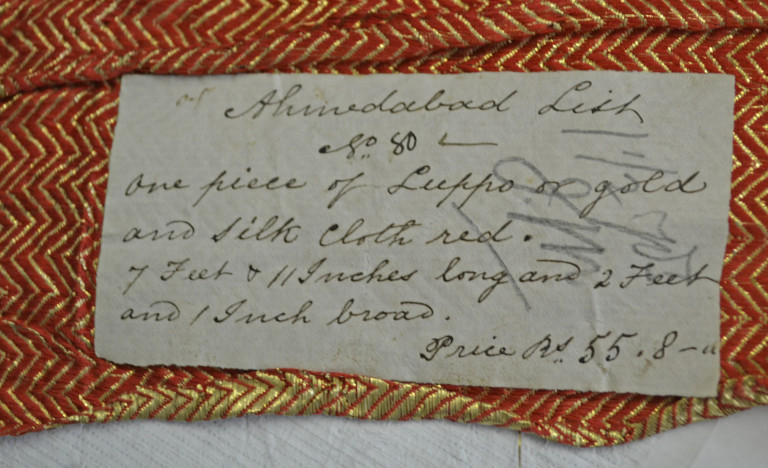 Ahmedabad List
No. 80
one piece of Luppo or gold
and silk cloth red.
7 Feet & 11 Inches long and 2 Feet
and 1 Inch broad.
Price Rs. 55.8-"